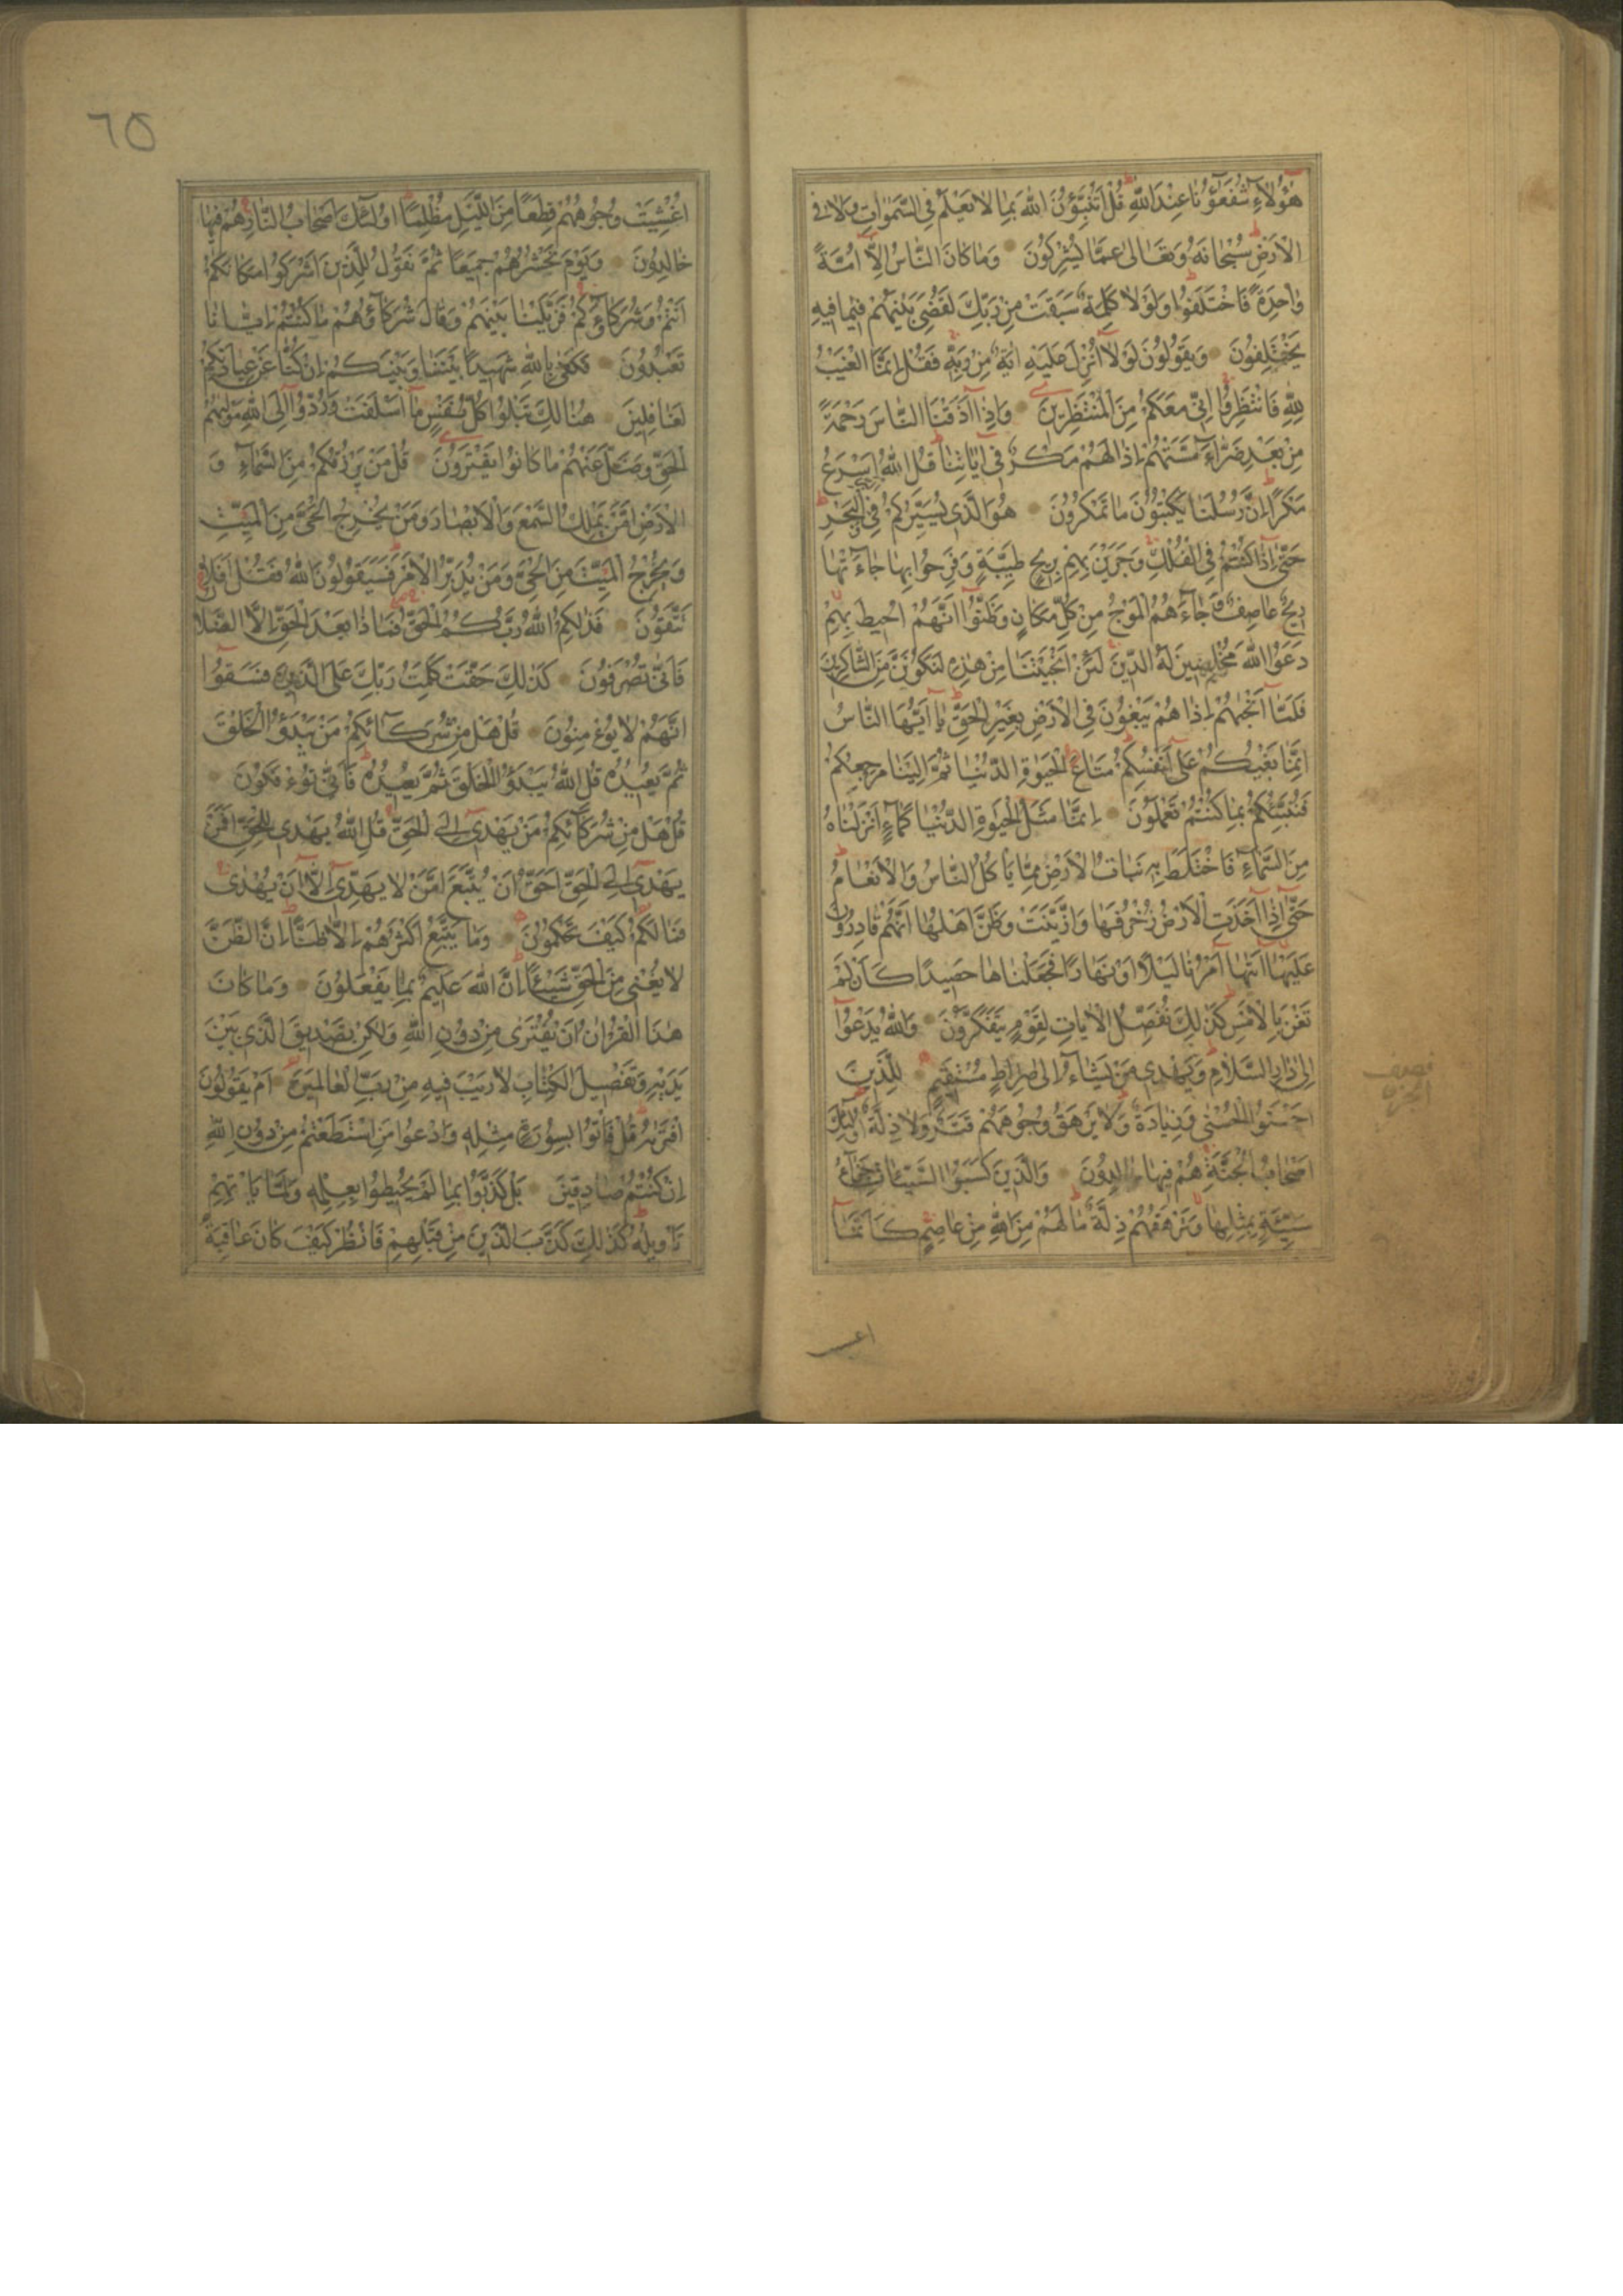 هٰؤُلَاءِ شُفَعَاؤُنَا عِنْدَ اللّٰهِ قُلْ اَتُنَبِّؤُنَ اللّٰهَ بِمَا لَا يَعْلَمُ فِي السَّمٰوَاتِ وَلَا فِي
الْاَرْضِ سُبْحَانَهُ وَتَعَالٰى عَمَّا يُشْرِكُونَ وَمَا كَانَ النَّاسُ اِلَّا اُمَّةً
وَاحِدَةً فَاخْتَلَفُوا وَلَوْلَا كَلِمَةٌ سَبَقَتْ مِنْ رَبِّكَ لَقُضِيَ بَيْنَهُمْ فِيمَا فِيهِ
يَخْتَلِفُونَ وَيَقُولُونَ لَوْلَا اُنْزِلَ عَلَيْهِ اٰيَةٌ مِنْ رَبِّهِ فَقُلْ اِنَّمَا الْغَيْبُ
لِلّٰهِ فَانْتَظِرُوا اِنِّي مَعَكُمْ مِنَ الْمُنْتَظِرِينَ وَاِذَا اَذَقْنَا النَّاسَ رَحْمَةً
مِنْ بَعْدِ ضَرَّاءَ مَسَّتْهُمْ اِذَا لَهُمْ مَكْرٌ فِي اٰيَاتِنَا قُلِ اللّٰهُ اَسْرَعُ
مَكْرًا اِنَّ رُسُلَنَا يَكْتُبُونَ مَا تَمْكُرُونَ هُوَ الَّذِي يُسَيِّرُكُمْ فِي الْبَحْرِ
حَتّٰى اِذَا كُنْتُمْ فِي الْفُلْكِ وَجَرَيْنَ بِهِمْ بِرِيحٍ طَيِّبَةٍ وَفَرِحُوا بِهَا جَاءَتْهَا
رِيحٌ عَاصِفٌ وَجَاءَهُمُ الْمَوْجُ مِنْ كُلِّ مَكَانٍ وَظَنُّوا اَنَّهُمْ اُحِيطَ بِهِمْ
دَعَوُا اللّٰهَ مُخْلِصِينَ لَهُ الدِّينَ لَئِنْ اَنْجَيْتَنَا مِنْ هٰذِهِ لَنَكُونَنَّ مِنَ الشَّاكِرِينَ
فَلَمَّا اَنْجٰيهُمْ اِذَا هُمْ يَبْغُونَ فِي الْاَرْضِ بِغَيْرِ الْحَقِّ يَا اَيُّهَا النَّاسُ
اِنَّمَا بَغْيُكُمْ عَلٰى اَنْفُسِكُمْ مَتَاعَ الْحَيٰوةِ الدُّنْيَا ثُمَّ اِلَيْنَا مَرْجِعُكُمْ
فَنُنَبِّئُكُمْ بِمَا كُنْتُمْ تَعْمَلُونَ اِنَّمَا مَثَلُ الْحَيٰوةِ الدُّنْيَا كَمَاءٍ اَنْزَلْنَاهُ
مِنَ السَّمَاءِ فَاخْتَلَطَ بِهِ نَبَاتُ الْاَرْضِ مِمَّا يَاْكُلُ النَّاسُ وَالْاَنْعَامُ
حَتّٰى اِذَا اَخَذَتِ الْاَرْضُ زُخْرُفَهَا وَازَّيَّنَتْ وَظَنَّ اَهْلُهَا اَنَّهُمْ قَادِرُونَ
عَلَيْهَا اَتٰيهَا اَمْرُنَا لَيْلًا اَوْ نَهَارًا فَجَعَلْنَاهَا حَصِيدًا كَاَنْ لَمْ
تَغْنَ بِالْاَمْسِ كَذٰلِكَ نُفَصِّلُ الْاٰيَاتِ لِقَوْمٍ يَتَفَكَّرُونَ وَاللّٰهُ يَدْعُوا
اِلٰى دَارِ السَّلَامِ وَيَهْدِي مَنْ يَشَاءُ اِلٰى صِرَاطٍ مُسْتَقِيمٍ لِلَّذِينَ
اَحْسَنُوا الْحُسْنٰى وَزِيَادَةٌ وَلَا يَرْهَقُ وُجُوهَهُمْ قَتَرٌ وَلَا ذِلَّةٌ اُولٰئِكَ
اَصْحَابُ الْجَنَّةِ هُمْ فِيهَا خَالِدُونَ وَالَّذِينَ كَسَبُوا السَّيِّئَاتِ جَزَاءُ
سَيِّئَةٍ بِمِثْلِهَا وَتَرْهَقُهُمْ ذِلَّةٌ مَا لَهُمْ مِنَ اللّٰهِ مِنْ عَاصِمٍ كَاَنَّمَا
نصف
الجزء
٦٥
اُغْشِيَتْ وُجُوهُهُمْ قِطَعًا مِنَ اللَّيْلِ مُظْلِمًا اُولٰئِكَ اَصْحَابُ النَّارِ هُمْ فِيهَا
خَالِدُونَ وَيَوْمَ نَحْشُرُهُمْ جَمِيعًا ثُمَّ نَقُولُ لِلَّذِينَ اَشْرَكُوا مَكَانَكُمْ
اَنْتُمْ وَشُرَكَاؤُكُمْ فَزَيَّلْنَا بَيْنَهُمْ وَقَالَ شُرَكَاؤُهُمْ مَا كُنْتُمْ اِيَّانَا
تَعْبُدُونَ فَكَفٰى بِاللّٰهِ شَهِيدًا بَيْنَنَا وَبَيْنَكُمْ اِنْ كُنَّا عَنْ عِبَادَتِكُمْ
لَغَافِلِينَ هُنَالِكَ تَبْلُوا كُلُّ نَفْسٍ مَا اَسْلَفَتْ وَرُدُّوا اِلَى اللّٰهِ مَوْلٰيهُمُ
الْحَقِّ وَضَلَّ عَنْهُمْ مَا كَانُوا يَفْتَرُونَ قُلْ مَنْ يَرْزُقُكُمْ مِنَ السَّمَاءِ وَ
الْاَرْضِ اَمَّنْ يَمْلِكُ السَّمْعَ وَالْاَبْصَارَ وَمَنْ يُخْرِجُ الْحَيَّ مِنَ الْمَيِّتِ
وَيُخْرِجُ الْمَيِّتَ مِنَ الْحَيِّ وَمَنْ يُدَبِّرُ الْاَمْرَ فَسَيَقُولُونَ اللّٰهُ فَقُلْ اَفَلَا
تَتَّقُونَ فَذٰلِكُمُ اللّٰهُ رَبُّكُمُ الْحَقُّ فَمَاذَا بَعْدَ الْحَقِّ اِلَّا الضَّلَالُ
فَاَنّٰى تُصْرَفُونَ كَذٰلِكَ حَقَّتْ كَلِمَتُ رَبِّكَ عَلَى الَّذِينَ فَسَقُوا
اَنَّهُمْ لَا يُؤْمِنُونَ قُلْ هَلْ مِنْ شُرَكَائِكُمْ مَنْ يَبْدَؤُ الْخَلْقَ
ثُمَّ يُعِيدُهُ قُلِ اللّٰهُ يَبْدَؤُ الْخَلْقَ ثُمَّ يُعِيدُهُ فَاَنّٰى تُؤْفَكُونَ
قُلْ هَلْ مِنْ شُرَكَائِكُمْ مَنْ يَهْدِي اِلَى الْحَقِّ قُلِ اللّٰهُ يَهْدِي لِلْحَقِّ اَفَمَنْ
يَهْدِي اِلَى الْحَقِّ اَحَقُّ اَنْ يُتَّبَعَ اَمَّنْ لَا يَهِدِّي اِلَّا اَنْ يُهْدٰى
فَمَا لَكُمْ كَيْفَ تَحْكُمُونَ وَمَا يَتَّبِعُ اَكْثَرُهُمْ اِلَّا ظَنًّا اِنَّ الظَّنَّ
لَا يُغْنِي مِنَ الْحَقِّ شَيْئًا اِنَّ اللّٰهَ عَلِيمٌ بِمَا يَفْعَلُونَ وَمَا كَانَ
هٰذَا الْقُرْاٰنُ اَنْ يُفْتَرٰى مِنْ دُونِ اللّٰهِ وَلٰكِنْ تَصْدِيقَ الَّذِي بَيْنَ
يَدَيْهِ وَتَفْصِيلَ الْكِتَابِ لَا رَيْبَ فِيهِ مِنْ رَبِّ الْعَالَمِينَ اَمْ يَقُولُونَ
افْتَرٰيهُ قُلْ فَاْتُوا بِسُورَةٍ مِثْلِهِ وَادْعُوا مَنِ اسْتَطَعْتُمْ مِنْ دُونِ اللّٰهِ
اِنْ كُنْتُمْ صَادِقِينَ بَلْ كَذَّبُوا بِمَا لَمْ يُحِيطُوا بِعِلْمِهِ وَلَمَّا يَاْتِهِمْ
تَاْوِيلُهُ كَذٰلِكَ كَذَّبَ الَّذِينَ مِنْ قَبْلِهِمْ فَانْظُرْ كَيْفَ كَانَ عَاقِبَةُ